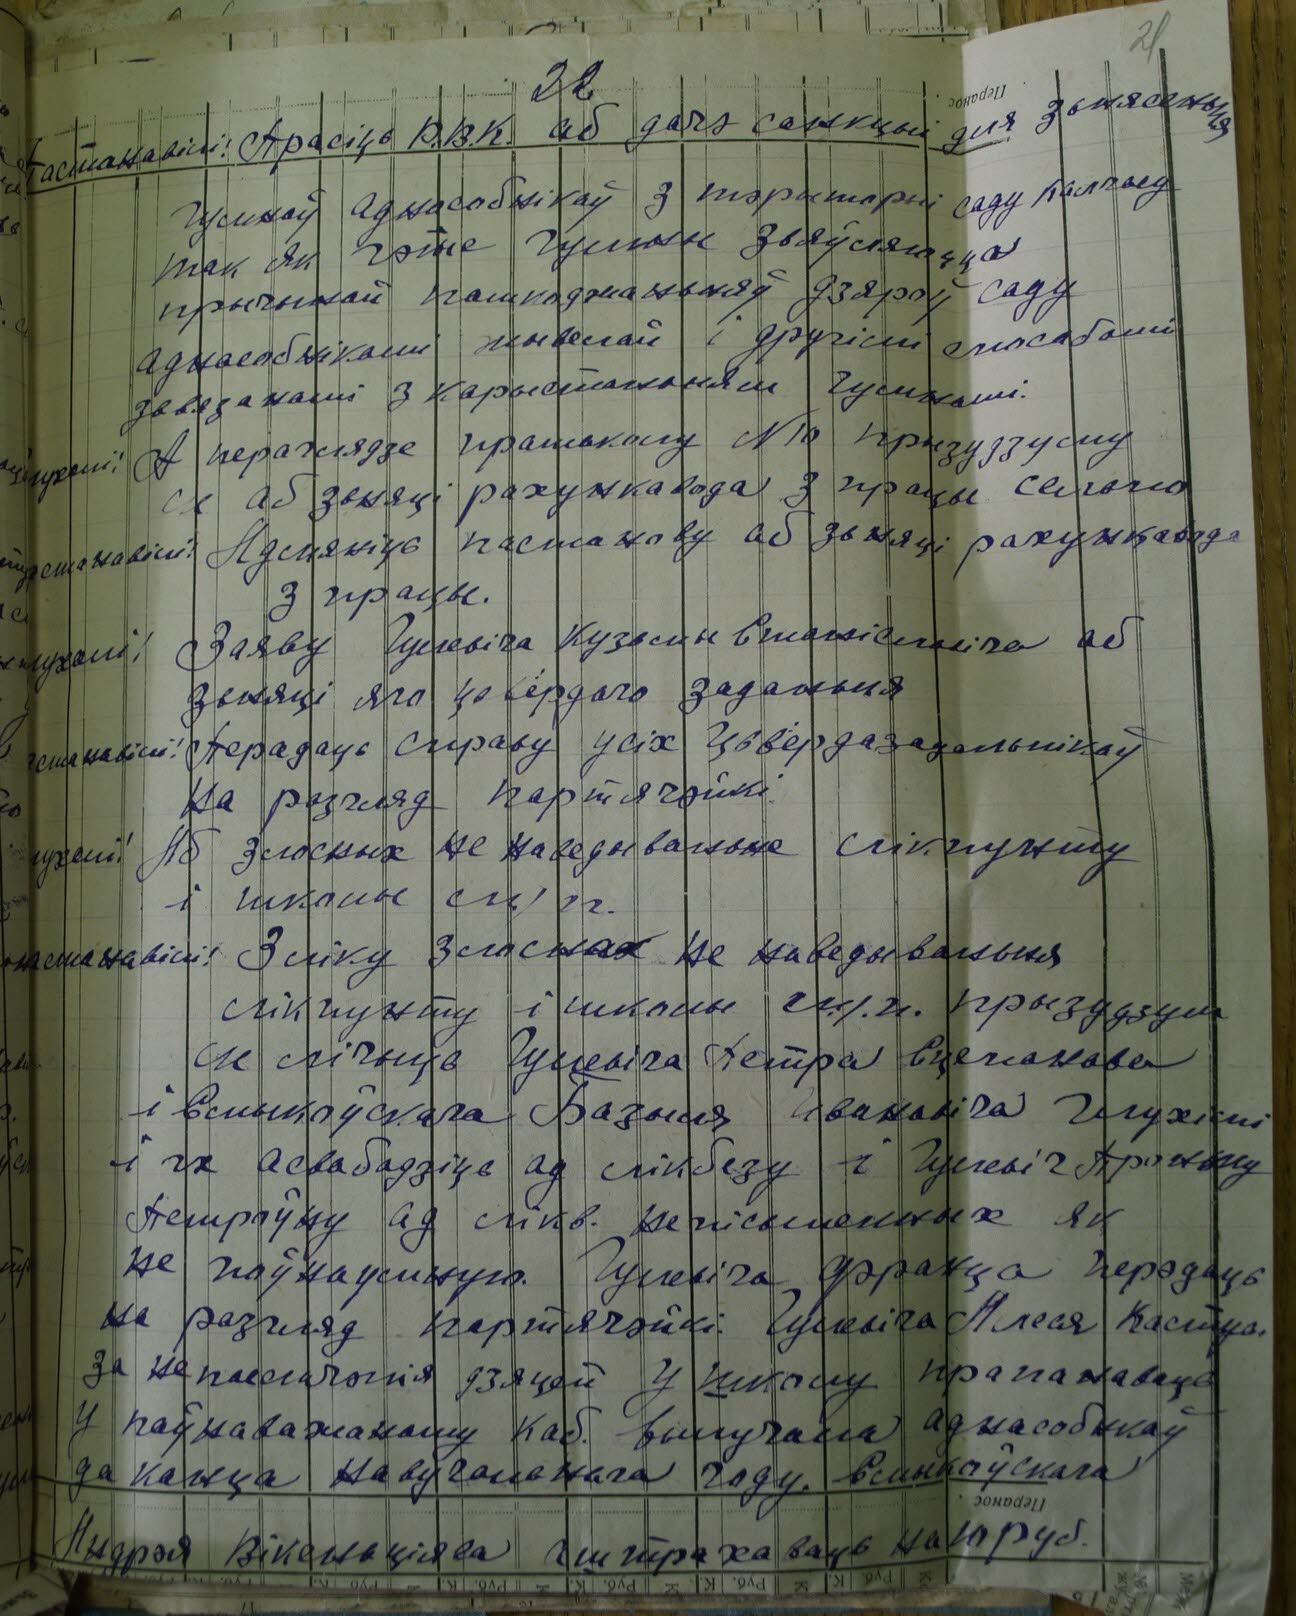 22
21
Перанос
Пастанавілі! Прасіць Р.В.К. аб дачэ санкцый для зьнясеньня
гумнаў аднасобнікаў з тэрыторыі саду калгасу
так як гэтые гумны зьяўляюцца
прычынай пашкоджаньняў дзяроў саду
аднасобнікамі жывелай і другімі способамі
зьвязанамі з карыстаньням гумнамі.
Слухалі! А пераглядзе пратаколу №10 прызудзуму
ск аб зьняці рахункавода з працы
Пастанавілі! Адмяніць пастанову аб зьняці рахункавода
з працы.
Слухалі! Заяву Гулевіча Кузьмы Станіслввіча аб
зьняці яго цьвёрдаго заданьня
Пастанавілі! Перадаць справу усіх цьвёрдазадальнікаў
на разгляд партячэйкі.
Слухалі! Аб злосных не наведываньне лікпункту
і школы
Пастанавілі! З ліку злосных не наведываньня
лікпункту і школы прызудзум
ск лічыць Гулевіча Петра
і Базыля Івановіча глухімі
і іх асвабадзіць ад лікбезу і Гулевіч
Петроўну ад лікв. непісьменных як
не поўнаумную. Гулевіча Фэранца перэдаць
на разгляд партячэйкі. Гулевіча Алеся Кастуся
за дзяцей у школу прапанаваць
у паўнаважаному каб. вылучала аднасобнкаў
да канца навучальнага году.
Перанос
Андрэя Вікеньціява штрахаваць на руб.
Руб. К. Руб. К. Руб. К. Руб. К.